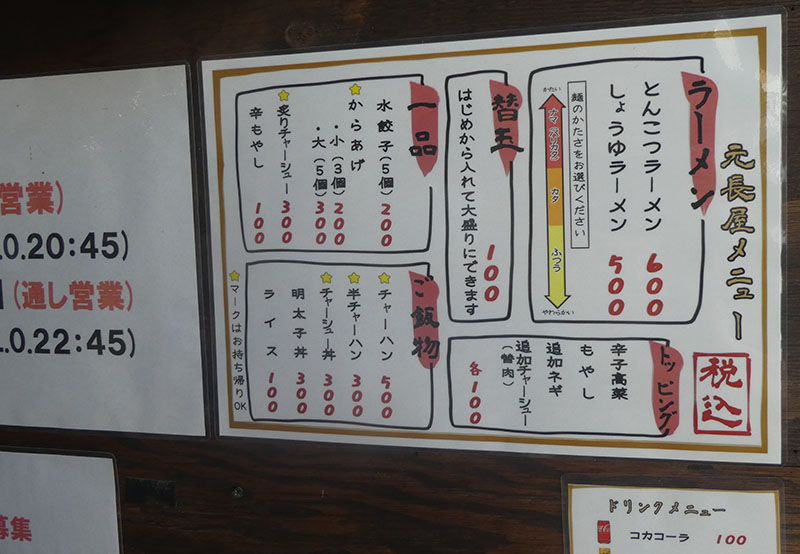 元長屋メニュー
税込
ラーメン
とんこつラーメン 600
しょうゆラーメン 500
麺のかたさをお選びください
かたい
カタ
ふつう
やわらかい
替玉
はじめから入れて大盛りにできます
100
一品
水餃子(5個) 200
★からあげ
・小(3個) 200
・大(5個) 300
★炙りチャーシュー 300
辛もやし 100
トッピング
辛子高菜
もやし
追加ネギ
追加チャーシュー
(替肉)
各100
ご飯物
★チャーハン 500
★半チャーハン 300
★チャーシュー丼 300
明太子丼 300
ライス 100
★マークはお持ち帰りOK
営業)
.0.20:45)
(通し営業)
.0.22:45)
募集
ドリンクメニュー
コカコーラ 100